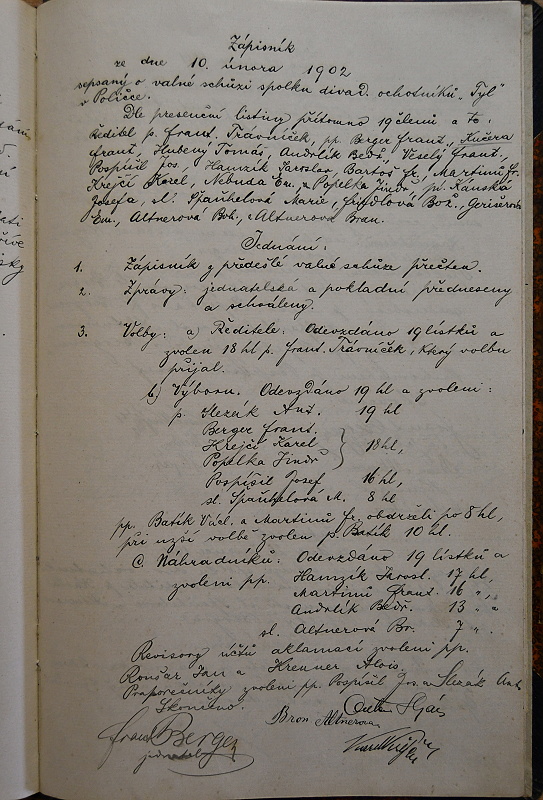 Zápisník
ze dne 10. února 1902
sepsaný o valné schůzi spolku divad. ochotníků „Tyl"
v Poličce.
Dle presenční listiny přítomno 19 členů a to:
Ředitel p. Frant. Trávníček, pp. Berger Frant., Kučera
Frant, Hubený Tomáš, Andrlík Bedř., Veselý Frant.
Pospíšil Jos., Hamzík Jaroslav, Bartoš Fr., Martinů Fr.
Krejčí Karel, Nebuda Em. a Popelka Jindř. pí. Kánská
Josefa, sl. Španhelová Marie, Bož.,
Em., Altnerová Boh., Altnerova Bron.
Jednání:
1. Zápisník z předešlé valné schůze přečten.
2. Zprávy: jednatelská a pokladní předneseny
a schváleny.
3. Volby: a) Ředitele: Odevzdáno 19 lístků a
zvolen 18 hl p. Frant. Trávníček, který volbu
přijal.
b) Výboru. Odevzdáno 19 hl a zvoleni:
p. Slezák Ant. 19 hl
Berger Frant.
Krejčí Karel } 18 hl,
Popelka Jindř
Pospíšil Josef 16 hl,
sl. Španhelová M. 8 hl
pp. Batík Václ. a Martinů Fr. obdrželi po 8 hl,
při užší volbě zvolen p. Batík 10 hl.
C. Náhradníků: Odevzdáno 19 lístků a
zvoleni pp. Hamzík Jarosl. 17 hl,
Martinů Frant. 16 „ „
Andrlík Bedř. 13 „ „
sl. Altnerová Br. 7 „ .
Revisory účtů aklamací zvoleni pp.
Jan a Krenner Alois.
zvoleni pp. Pospíšil Jos. a Slezák Ant.
Skončeno.
Bron Altnerova
Frant Berger
jednatel